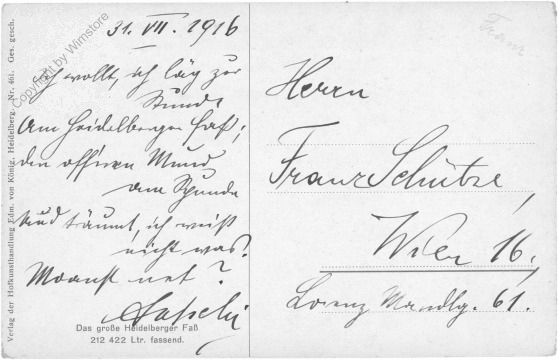 31. VII. 1916
Ich wollt, ich läg zur
Stund
Am Heidelberger Faß,
den offnen Mund
am Spunde
und träumt, ich weiß
nicht was.
Moanst net?
Das große Heidelberger Faß
212 422 Ltr. fassend.
Verlag der Hofkunsthandlung Edm. von König, Heidelberg. Nr. 461. Ges. gesch.
Copyright by Wimstore
Franz
Herrn
Franz Schütze,
Wien 16.
Lorenz Mandlg. 61.